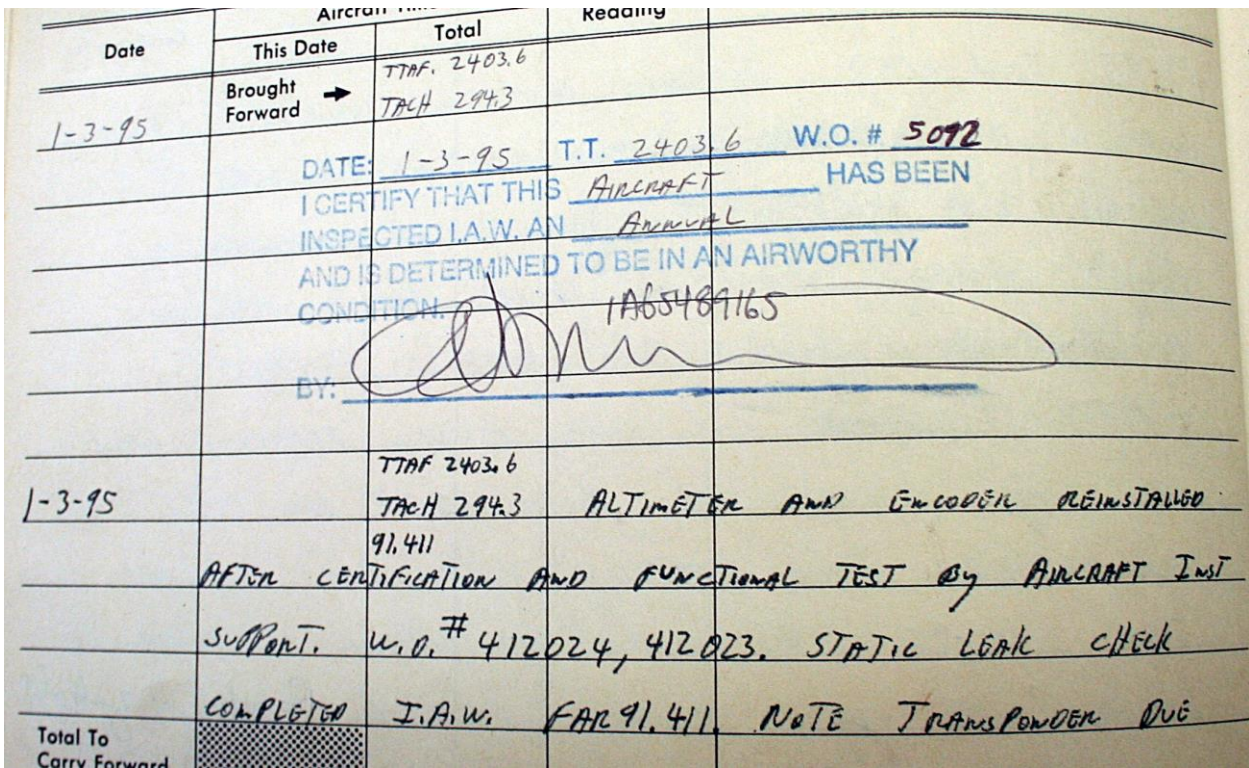 Date
This Date
Total
Reading
Brought
Forward
TTAF. 2403.6
TACH 294.3
1-3-95
DATE: 1-3-95 T.T. 2403.6 W.O. # 5092
I CERTIFY THAT THIS AIRCRAFT HAS BEEN
INSPECTED I.A.W. AN ANNUAL
AND IS DETERMINED TO BE IN AN AIRWORTHY
CONDITION.
IA65489165
BY:
TTAF 2403.6
1-3-95 TACH 294.3 ALTIMETER AND ENCODER REINSTALLED
91.411
AFTER CERTIFICATION AND FUNCTIONAL TEST By AIRCRAFT INST
SUPPORT. W.O.# 412024, 412023. STATIC LEAK CHECK
COMPLETED I.A.W. FAR 91.411. NOTE TRANSPONDER DUE
Total To
Carry Forward